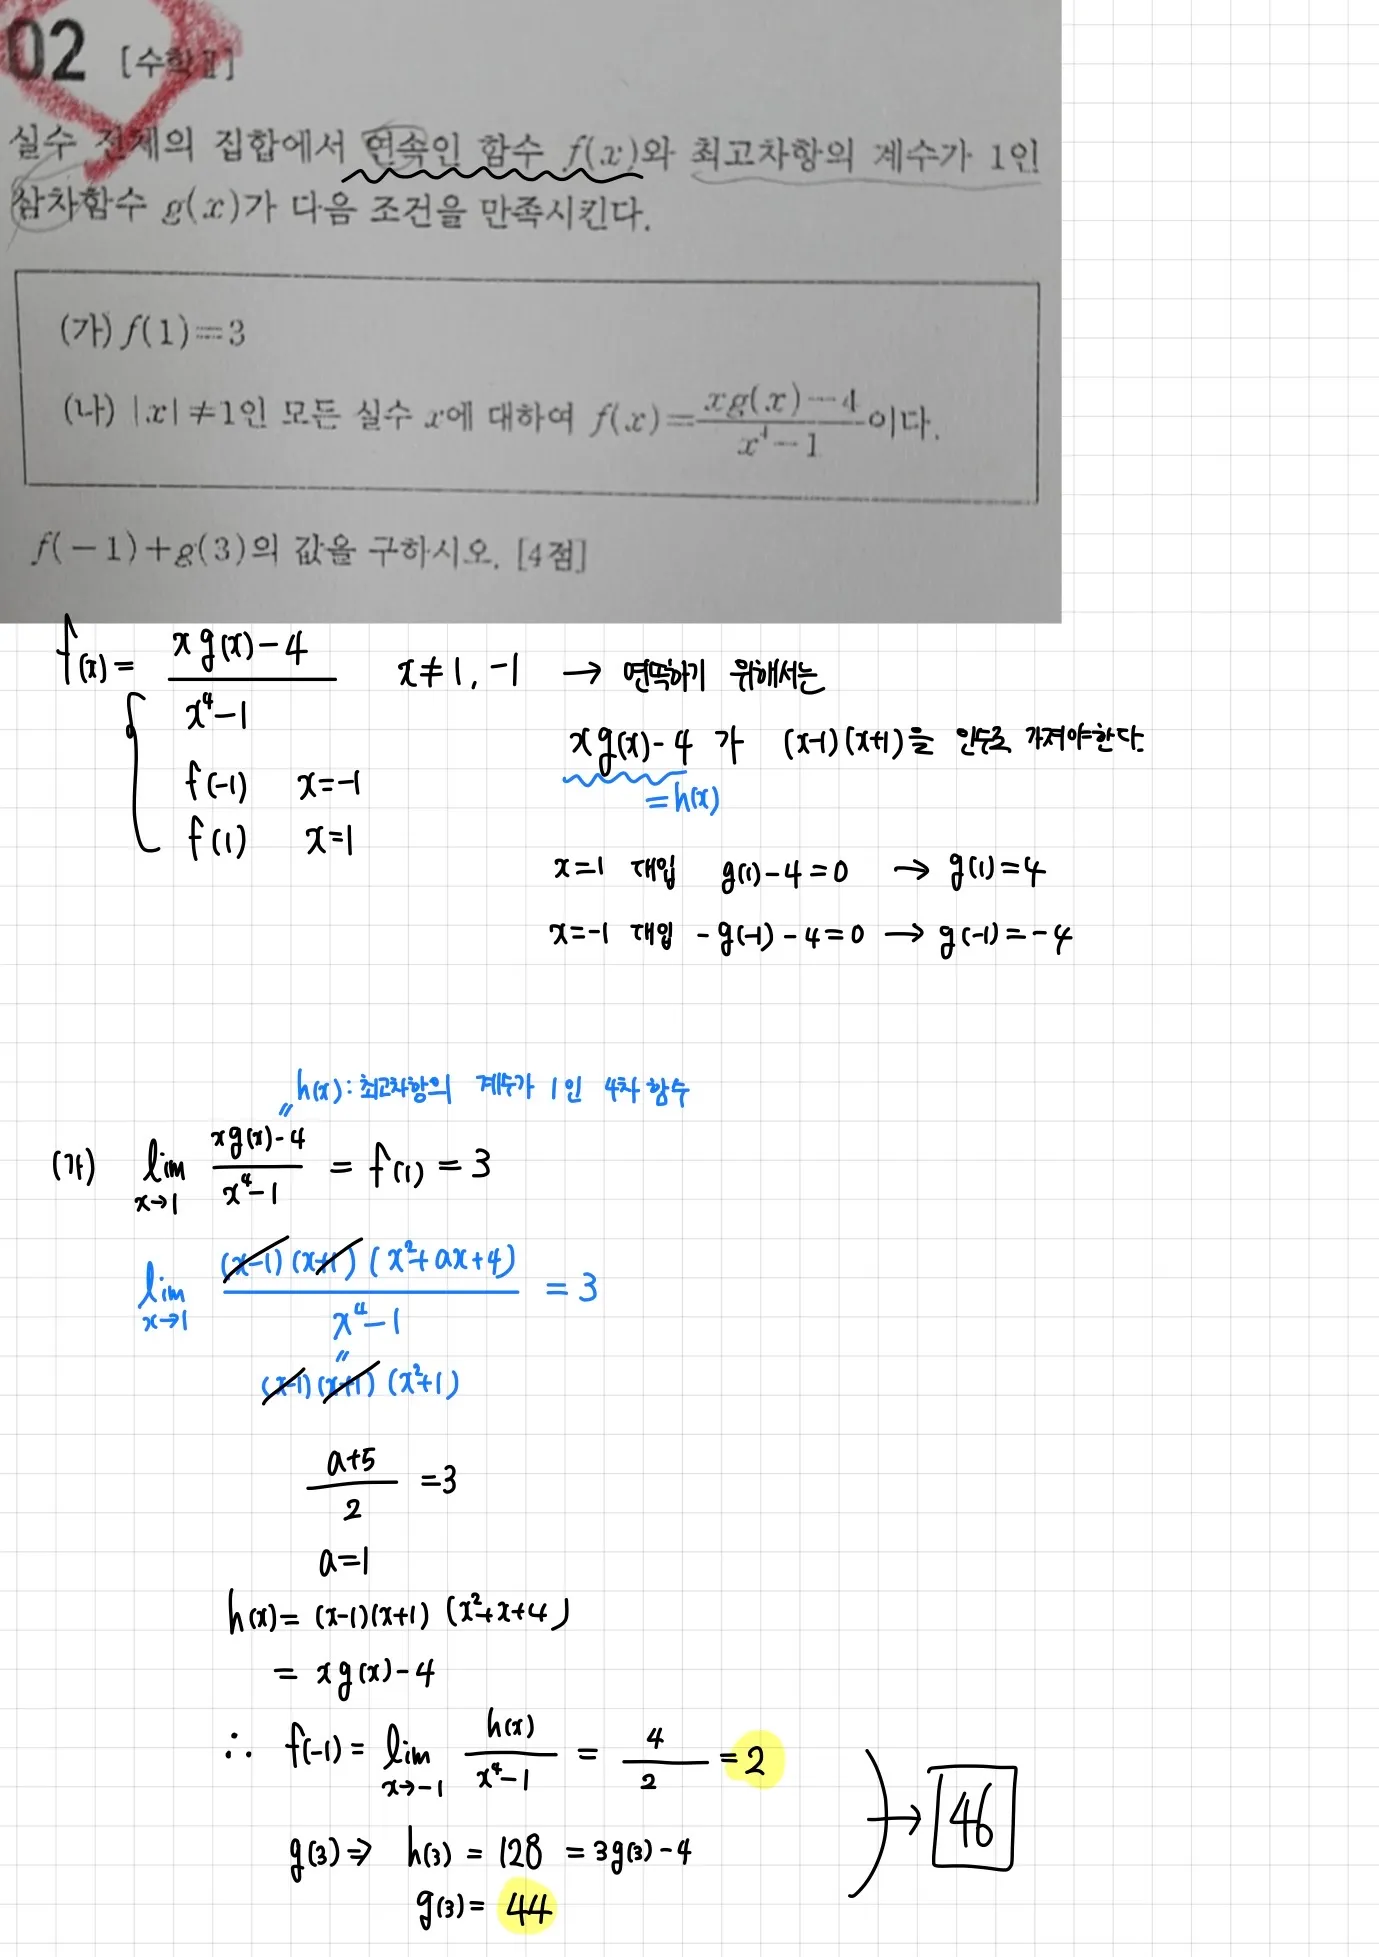 02 [수학Ⅱ]
실수 전체의 집합에서 연속인 함수 f(x)와 최고차항의 계수가 1인
삼차함수 g(x)가 다음 조건을 만족시킨다.
(가) f(1)=3
(나) |x|≠1인 모든 실수 x에 대하여 f(x)=(xg(x)-4)/(x⁴-1)이다.
f(-1)+g(3)의 값을 구하시오. [4점]
f(x)= (xg(x)-4)/(x⁴-1) x≠1, -1 → 연속하기 위해서는
xg(x)-4 가 (x-1)(x+1)을 인수로 가져야한다.
=h(x)
f(-1) x=-1
f(1) x=1
x=1 대입 g(1)-4=0 → g(1)=4
x=-1 대입 -g(-1)-4=0 → g(-1)=-4
h(x): 최고차항의 계수가 1인 4차함수
(가) lim x→1 (xg(x)-4)/(x⁴-1) = f(1) = 3
lim x→1 (x-1)(x+1)(x²+ax+4)/(x⁴-1) = 3
(x-1)(x+1)(x²+1)
(a+5)/2 =3
a=1
h(x)= (x-1)(x+1)(x²+x+4)
= xg(x)-4
∴ f(-1)= lim x→-1 h(x)/(x⁴-1) = 4/2 =2
g(3)⇒ h(3) = 128 = 3g(3)-4
g(3)= 44
→ 46